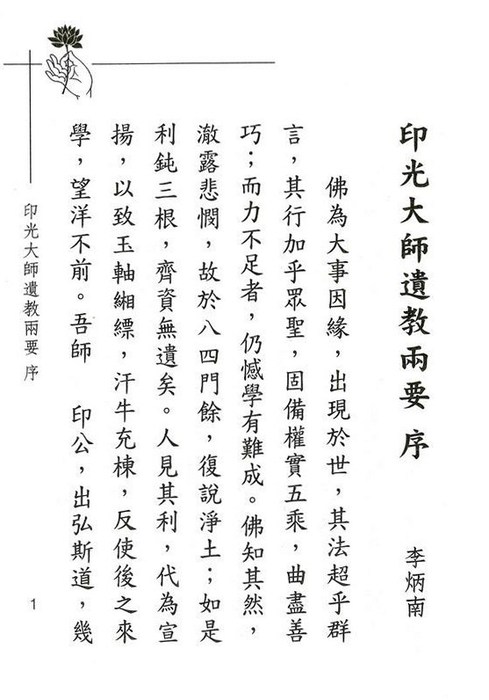 印光大師遺教兩要 序
李炳南
佛為大事因緣，出現於世，其法超乎群
言，其行加乎眾聖，固備權實五乘，曲盡善
巧；而力不足者，仍憾學有難成。佛知其然，
澈露悲憫，故於八四門餘，復說淨土；如是
利鈍三根，齊資無遺矣。人見其利，代為宣
揚，以致玉軸緗縹，汗牛充棟，反使後之來
學，望洋不前。吾師　印公，出弘斯道，幾
印光大師遺教兩要 序
1